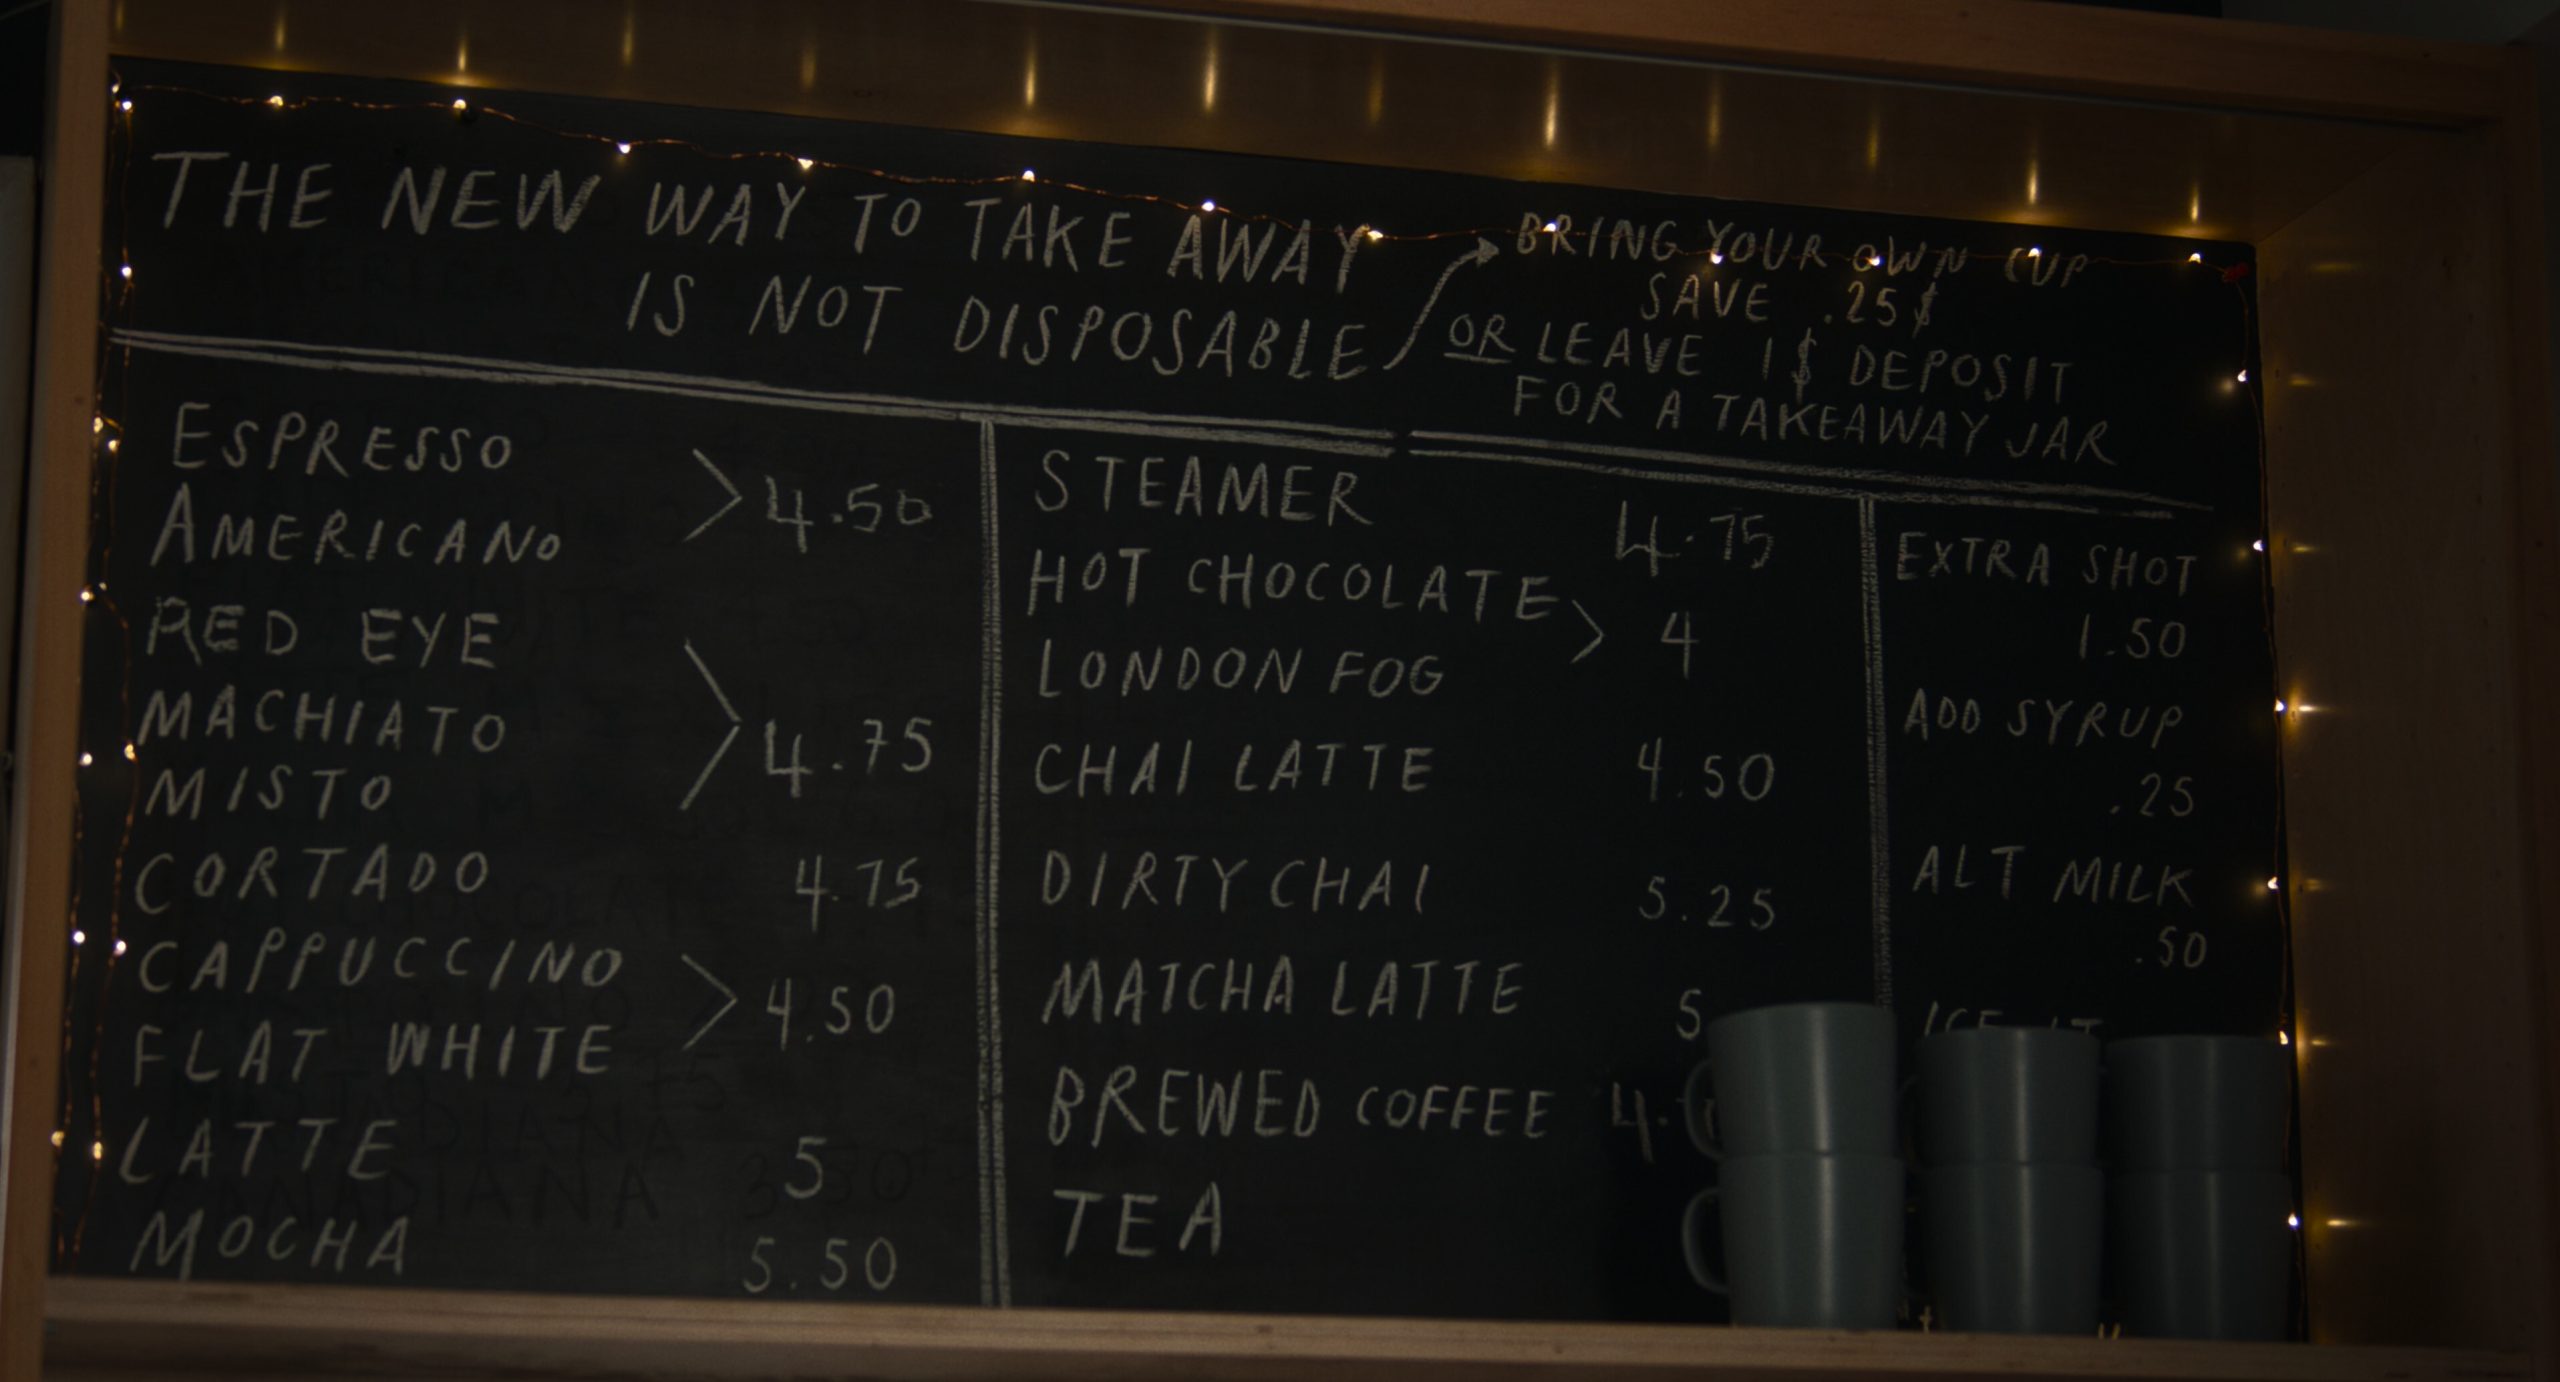 THE NEW WAY TO TAKE AWAY
IS NOT DISPOSABLE
BRING YOUR OWN CUP
SAVE .25$
OR LEAVE 1$ DEPOSIT
FOR A TAKEAWAY JAR
ESPRESSO
AMERICANO
> 4.50
RED EYE
MACHIATO
MISTO
> 4.75
CORTADO 4.75
CAPPUCCINO
FLAT WHITE
> 4.50
LATTE 5
MOCHA 5.50
STEAMER 4.75
HOT CHOCOLATE
LONDON FOG
> 4
CHAI LATTE 4.50
DIRTY CHAI 5.25
MATCHA LATTE 5
BREWED COFFEE 4.
TEA
EXTRA SHOT
1.50
ADD SYRUP
.25
ALT MILK
.50
ICE IT